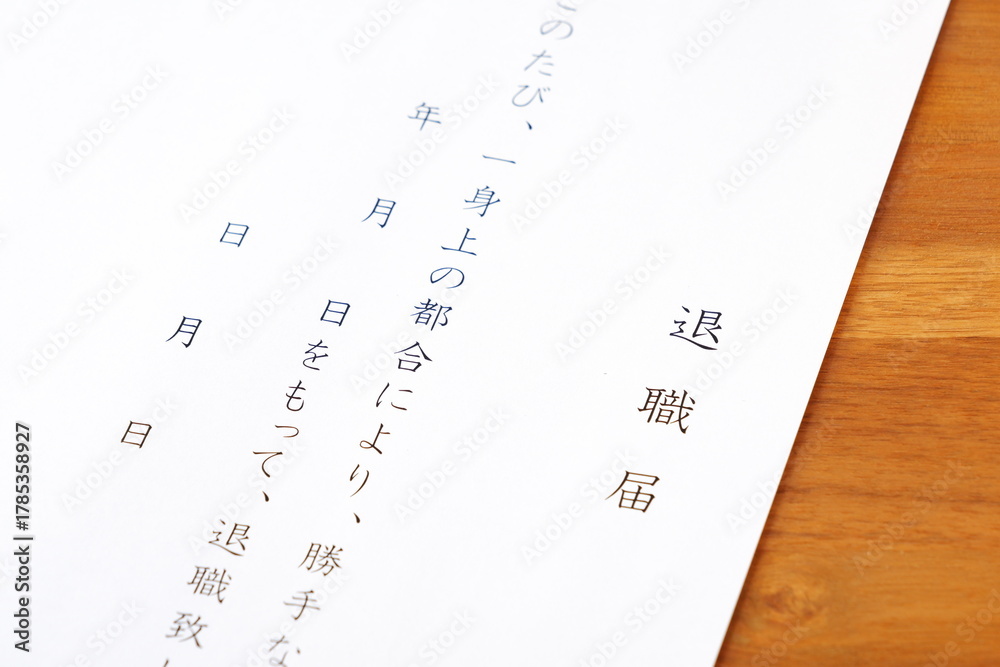 退職届
このたび、一身上の都合により、勝手な
年 月 日をもって、退職致
日 月 日
Adobe Stock | #1785358927